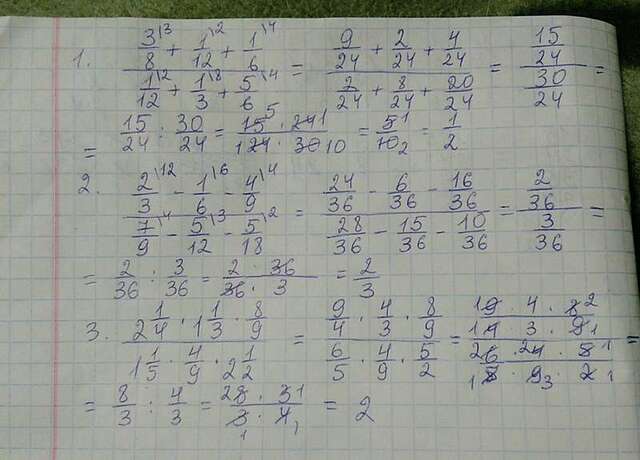 1. (3/8\3 + 1/12\2 + 1/6\4) / (1/12\2 + 1/3\8 + 5/6\4) = (9/24 + 2/24 + 4/24) / (2/24 + 8/24 + 20/24) = (15/24) / (30/24) =
= 15/24 : 30/24 = (15 5 · 24 1) / (1 24 · 30 10) = 5 1/10 2 = 1/2
2. (2/3\12 - 1/6\6 - 4/9\4) / (7/9\4 - 5/12\3 - 5/18\2) = (24/36 - 6/36 - 16/36) / (28/36 - 15/36 - 10/36) = (2/36) / (3/36) =
= 2/36 : 3/36 = (2 · 36) / (36 · 3) = 2/3
3. (2 1/4 · 1 1/3 · 8/9) / (1 1/5 · 4/9 · 2 1/2) = (9/4 · 4/3 · 8/9) / (6/5 · 4/9 · 5/2) = ((1 9 · 4 · 8 2) / (1 4 · 3 · 9 1)) / ((2 6 · 2 4 · 5 1) / (1 5 · 9 3 · 2 1))
= 8/3 : 4/3 = (2 8 · 3 1) / (3 1 · 4 1) = 2